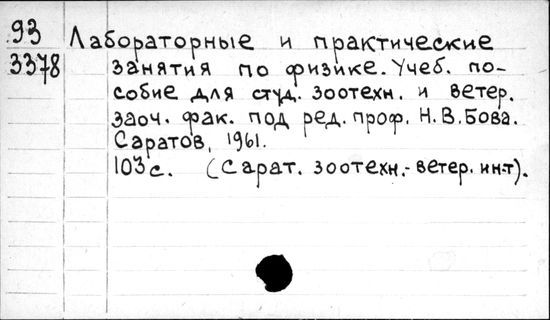 93
3378
Лабораторные и практические
занятия по физике. Учеб. по-
собие для студ. зоотехн. и ветер.
заоч. фак. под ред. проф. Н.В.Бова.
Саратов, 1961.
103с. (Сарат. зоотехн.-ветер. ин-т).